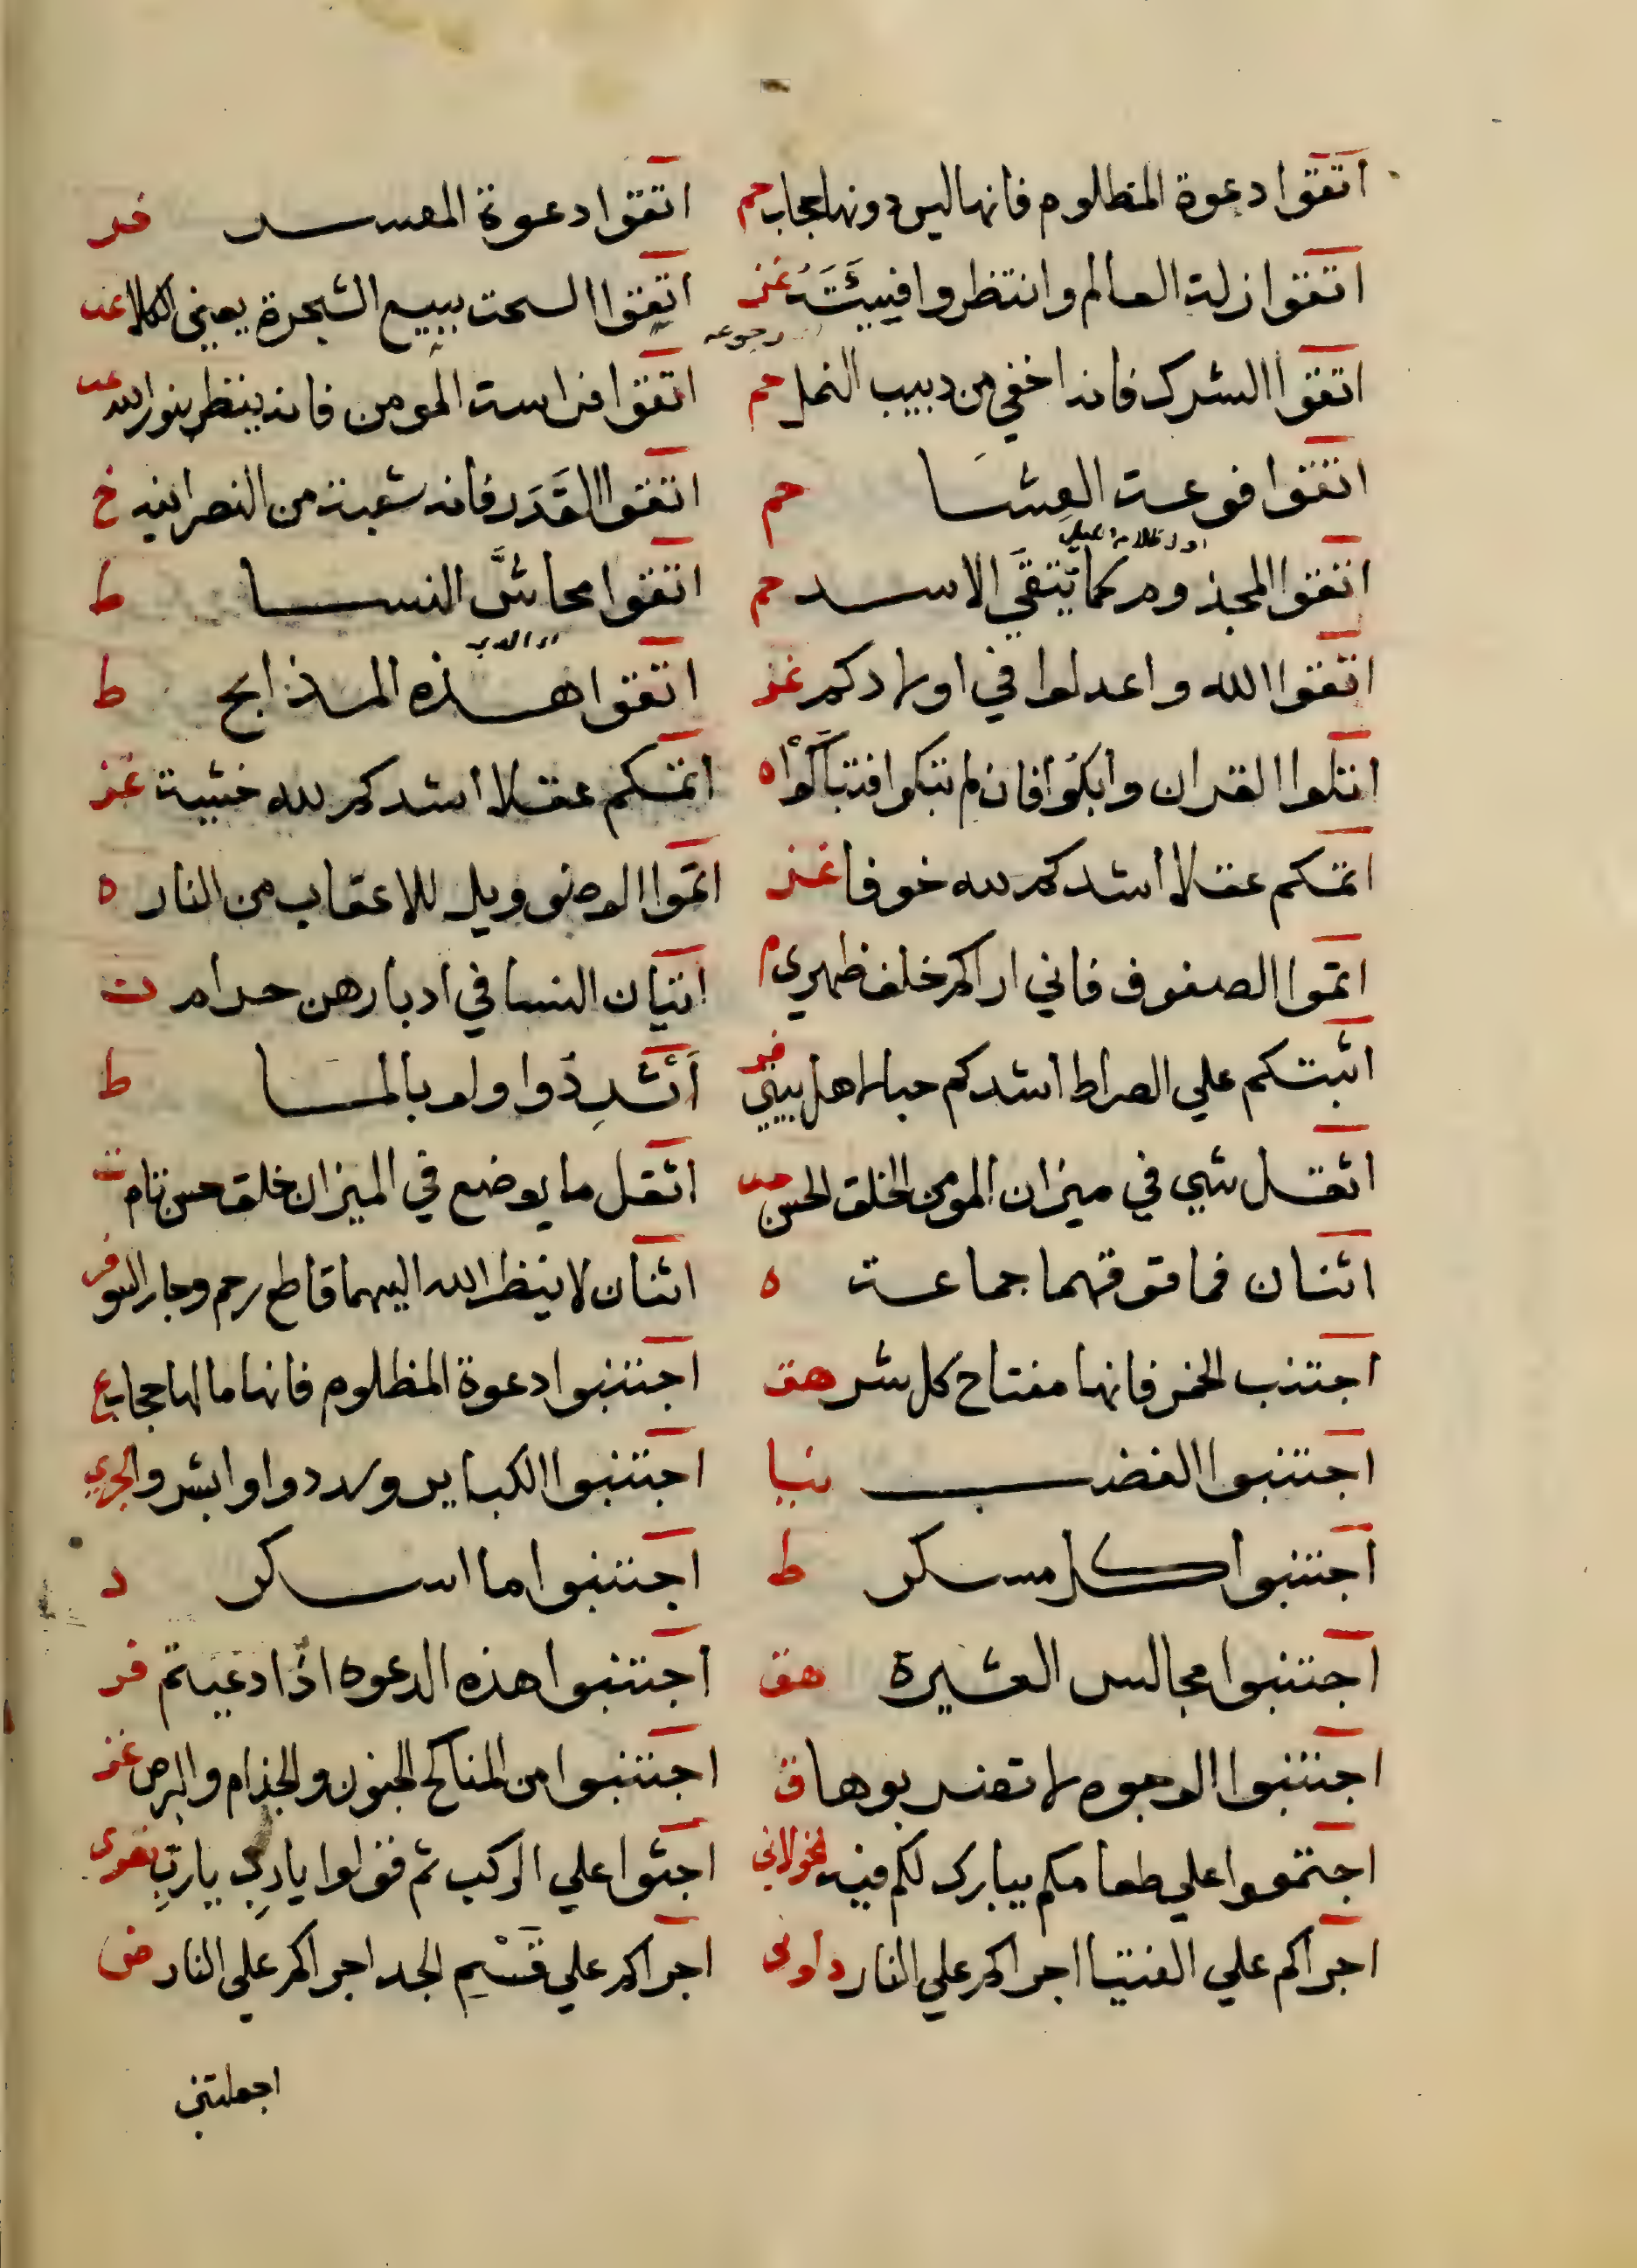 اتقوا دعوة المظلوم فانها ليس دونها حجاب حم
اتقوا دعوة المعسر فر
اتقوا زلة العالم وانتظروا فيئته غز
رجوعه
اتقوا السحت ببيع الشجرة يعني الكلا عد
اتقوا الشرك فانه اخفي من دبيب النمل حم
اتقوا فراسة المومن فانه ينظر بنور الله عد
اتقوا فوعة العِشا حم
اتقوا القَدَر فانه شعبة من النصرانية خ
اتقوا المجذوم كما تتقي الاسد حم
اتقوا محاشَّ النسا ط
اتقوا الله واعدلوا في اولادكم غز
اتقوا هذه المذابح ط
اتلوا القران وابكوا فان لم تبكوا فتباكَوْا ه
اتمكم عقلا اشدكم لله خشية غز
اتمكم عقلا اشدكم لله خوفا غز
اتموا الوضو ويل للاعقاب من النار ه
اتموا الصفوف فاني اراكم خلف ظهري م
اتيان النسا في ادبارهن حرام ت
اثبتكم علي الصراط اشدكم حبا لاهل بيتي فر
اَثْرِدُوا ولو بالما ط
اثقل شي في ميزان المومن الخلق الحسن حب
اثقل ما يوضع في الميزان خلق حسن تام ت
اثنان فما فوقهما جماعة ه
اثنان لا ينظر الله اليهما قاطع رحم وجار السو فر
اجتنب الخمر فانها مفتاح كل شر هق
اجتنبوا دعوة المظلوم فانها ما لها حجاب ع
اجتنبوا الغضب نيا
اجتنبوا الكباير وسددوا وابشروا لجري
اجتنبوا كل مسكر ط
اجتنبوا ما اسكر د
اجتنبوا مجالس العشيرة هق
اجتنبوا هذه الدعوه اذا دعيتم فر
اجتنبوا الوجوه لا تضربوها ق
اجتنبوا من المناكح الجنون والجذام والبرص غز
اجتمعوا علي طعامكم يبارك لكم فيه لخولاني
اجثوا علي الركب ثم قولوا يا ربِ يا ربِ بغوي
اجراكم علي الفتيا اجراكم علي النار داوني
اجراكم علي قَسْمِ الجد اجراكم علي النار ض
اجملتني